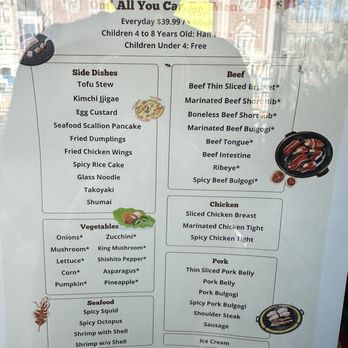 All You Can
Menu
Everyday $39.99
Children 4 to 8 Years Old: Half
Children Under 4: Free
Side Dishes
Tofu Stew
Kimchi Jjigae
Egg Custard
Seafood Scallion Pancake
Fried Dumplings
Fried Chicken Wings
Spicy Rice Cake
Glass Noodle
Takoyaki
Shumai
Beef
Beef Thin Sliced Brisket*
Marinated Beef Short Rib*
Boneless Beef Short Rib*
Marinated Beef Bulgogi*
Beef Tongue*
Beef Intestine
Ribeye*
Spicy Beef Bulgogi*
Vegetables
Onions* Zucchini*
Mushroom* King Mushroom*
Lettuce* Shishito Pepper*
Corn* Asparagus*
Pumpkin* Pineapple*
Chicken
Sliced Chicken Breast
Marinated Chicken Tight
Spicy Chicken Tight
Pork
Thin Sliced Pork Belly
Pork Belly
Pork Bulgogi
Spicy Pork Bulgogi
Shoulder Steak
Sausage
Seafood
Spicy Squid
Spicy Octopus
Shrimp with Shell
Shrimp w/o Shell
Ice Cream